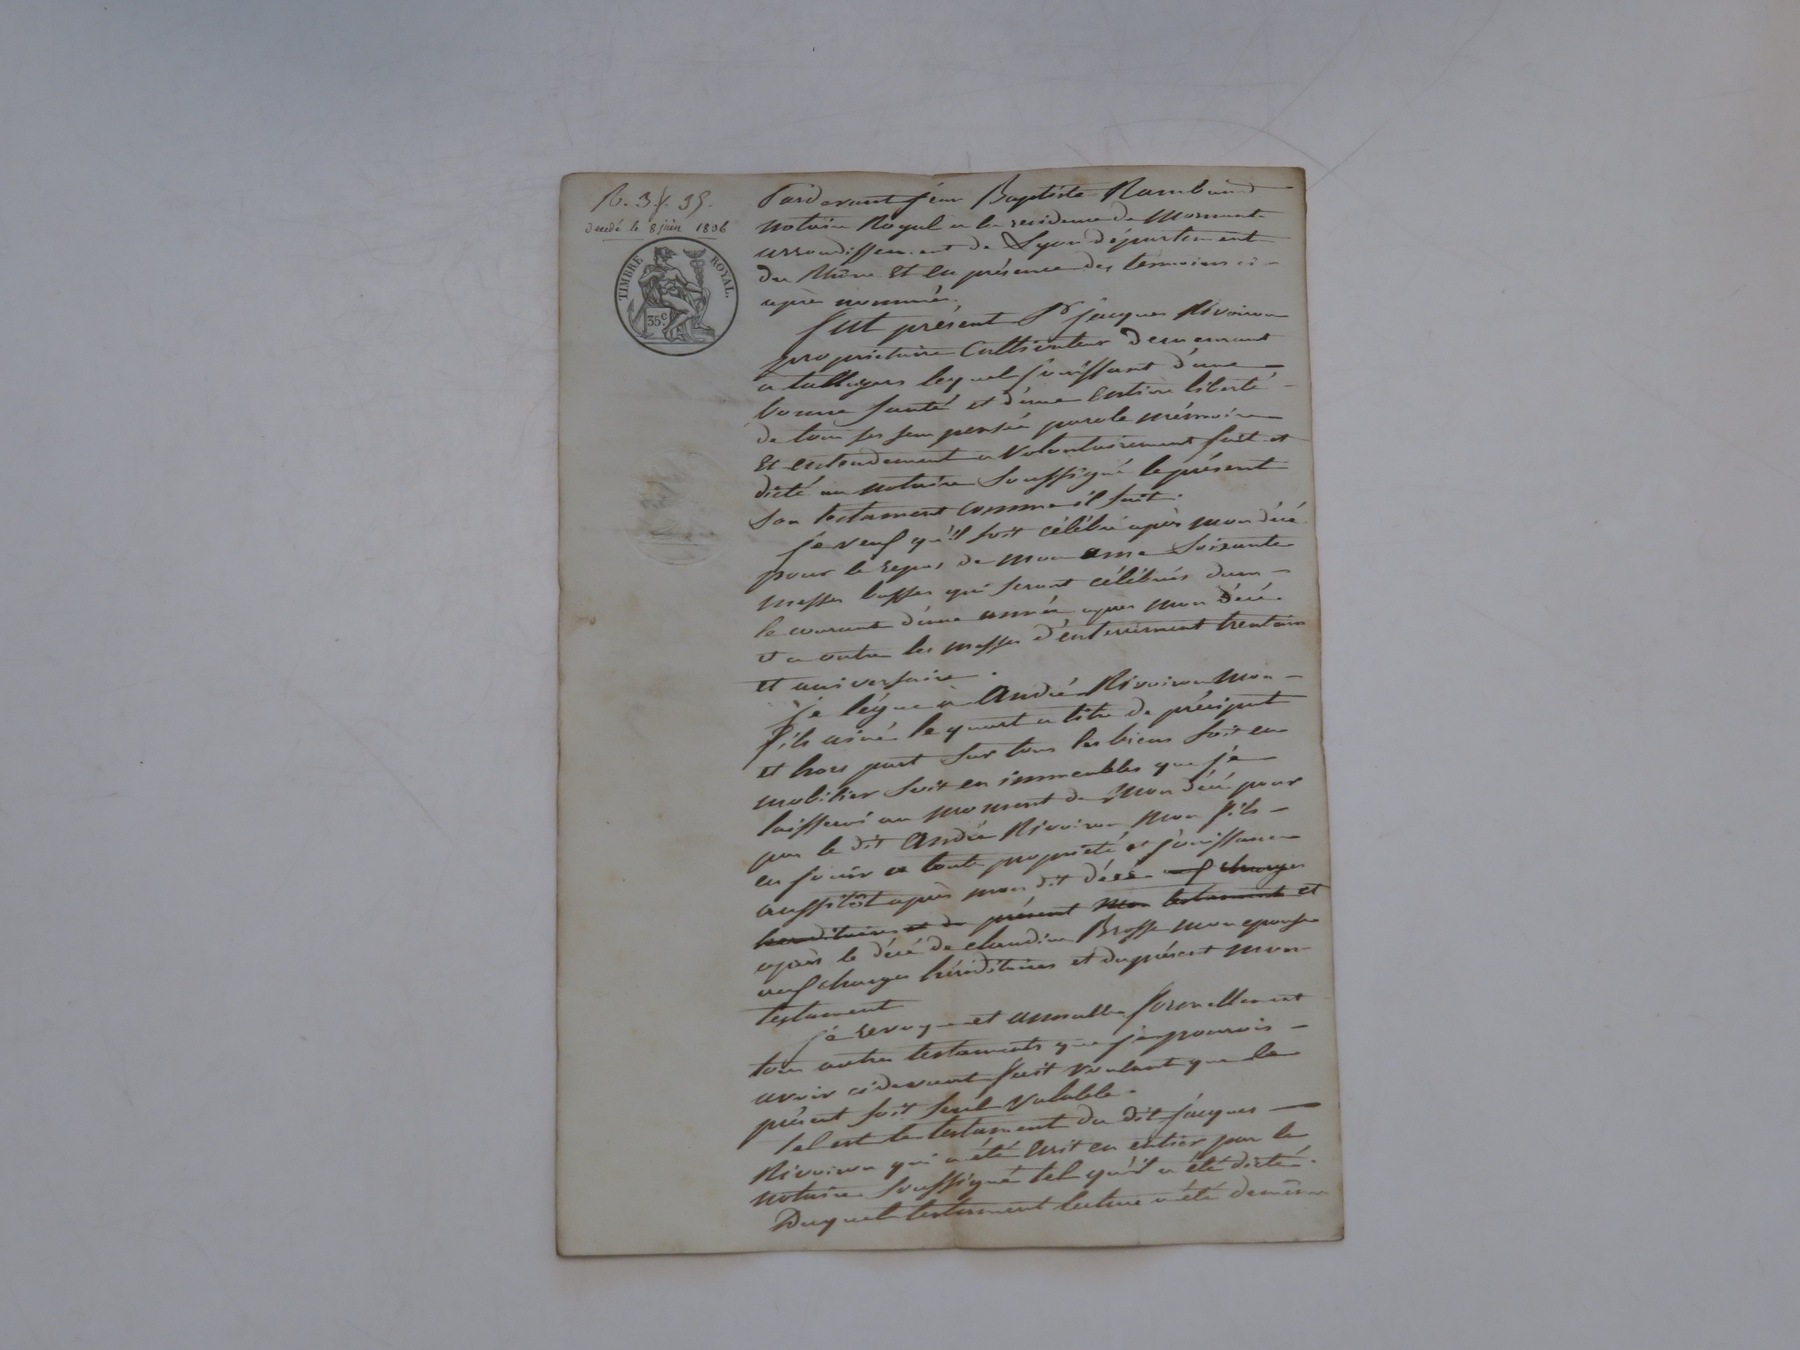 R. 3f. 35.
decedé le 8 juin 1836
TIMBRE ROYAL.
35 c.
Pardevant jean Baptiste Rambaud
notaire Royal a la residence de Mornant
arrondissement de Lyon département
du Rhône Et en présence des temoins ci-
après nommés.
fut présent Sr. jacques Rivoiron
propriétaire Cultivateur demeurant
a talluyers lequel jouissant d'une
bonne santé et d'une entière liberté
de tous ses sens pensée parole mémoire
Et entendement a volontairement fait et
dicté au notaire soussigné le présent
son testament comme il suit.
je veux qu'il soit célébré après mon décé
pour le repos de mon ame soixante
messes basses qui seront célébrées dans
le courant d'une année apres mon décé
et en outre les messes d'enterrement trentain
et aniversaire.
je légue a André Rivoiron mon
fils ainé le quart a titre de préciput
et hors part sur tous les biens soit en
mobilier soit en immeubles que je
laisserai au moment de mon décé pour
par le dit André Rivoiron mon fils
en jouir en toute propriété et jouissance
aussitôt apres mon dit décé auf charges
hereditaires et du présent mon testament et
après le décé de claudine Brosse mon epouse
auf charges héréditaires et du présent mon
testament
je revoque et annulle formellement
tous autres testaments que je pourrois
avoir cidevant fait voulant que le
présent soit seul valable.
tel est le testament du dit jacques
Rivoiron qui a été Ecrit en entier par le
notaire soussigné tel qu'il a été dicté.
Duquel testament lecture a été donnée